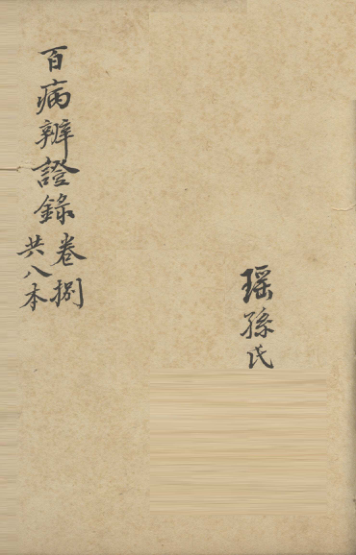 瑶孫氏
百病辨證錄卷捌
共八本